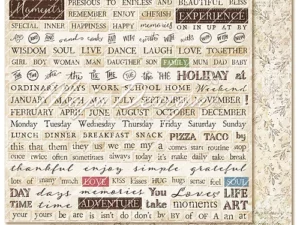 Moments PRECIOUS TO ENDLESS AND BEAUTIFUL BLISS
REMEMBER ENJOY CHERISH EXPERIENCE
SPECIAL INNER HAPPINESS HAPPY MEMORIES ON IN IF AT BY
WISDOM SOUL LIVE DANCE LAUGH LOVE TOGETHER
GIRL BOY WOMAN MAN DAUGHTER SON FAMILY MUM DAD BABY
THE THE THE HOLIDAY at
ORDINARY DAYS WORK SCHOOL HOME Weekend
JANUARY MARCH MAY JULY SEPTEMBER NOVEMBER !
FEBRUARY APRIL JUNE AUGUST OCTOBER DECEMBER
Monday Tuesday Wednesday Thursday Friday Saturday Sunday
LUNCH DINNER BREAKFAST SNACK PIZZA TACO by
this that them they us we me my a comes start routine stop
once twice often sometimes always today it's make take break
thankful enjoy simple grateful
lots of many much LOVE KISS Kisses HUG hugs sense feel SOUL
DAY days memories You Loves LIFE
TIME ADVENTURE take moments ART
your yours be are is isn't do don't by BY of OF A an at